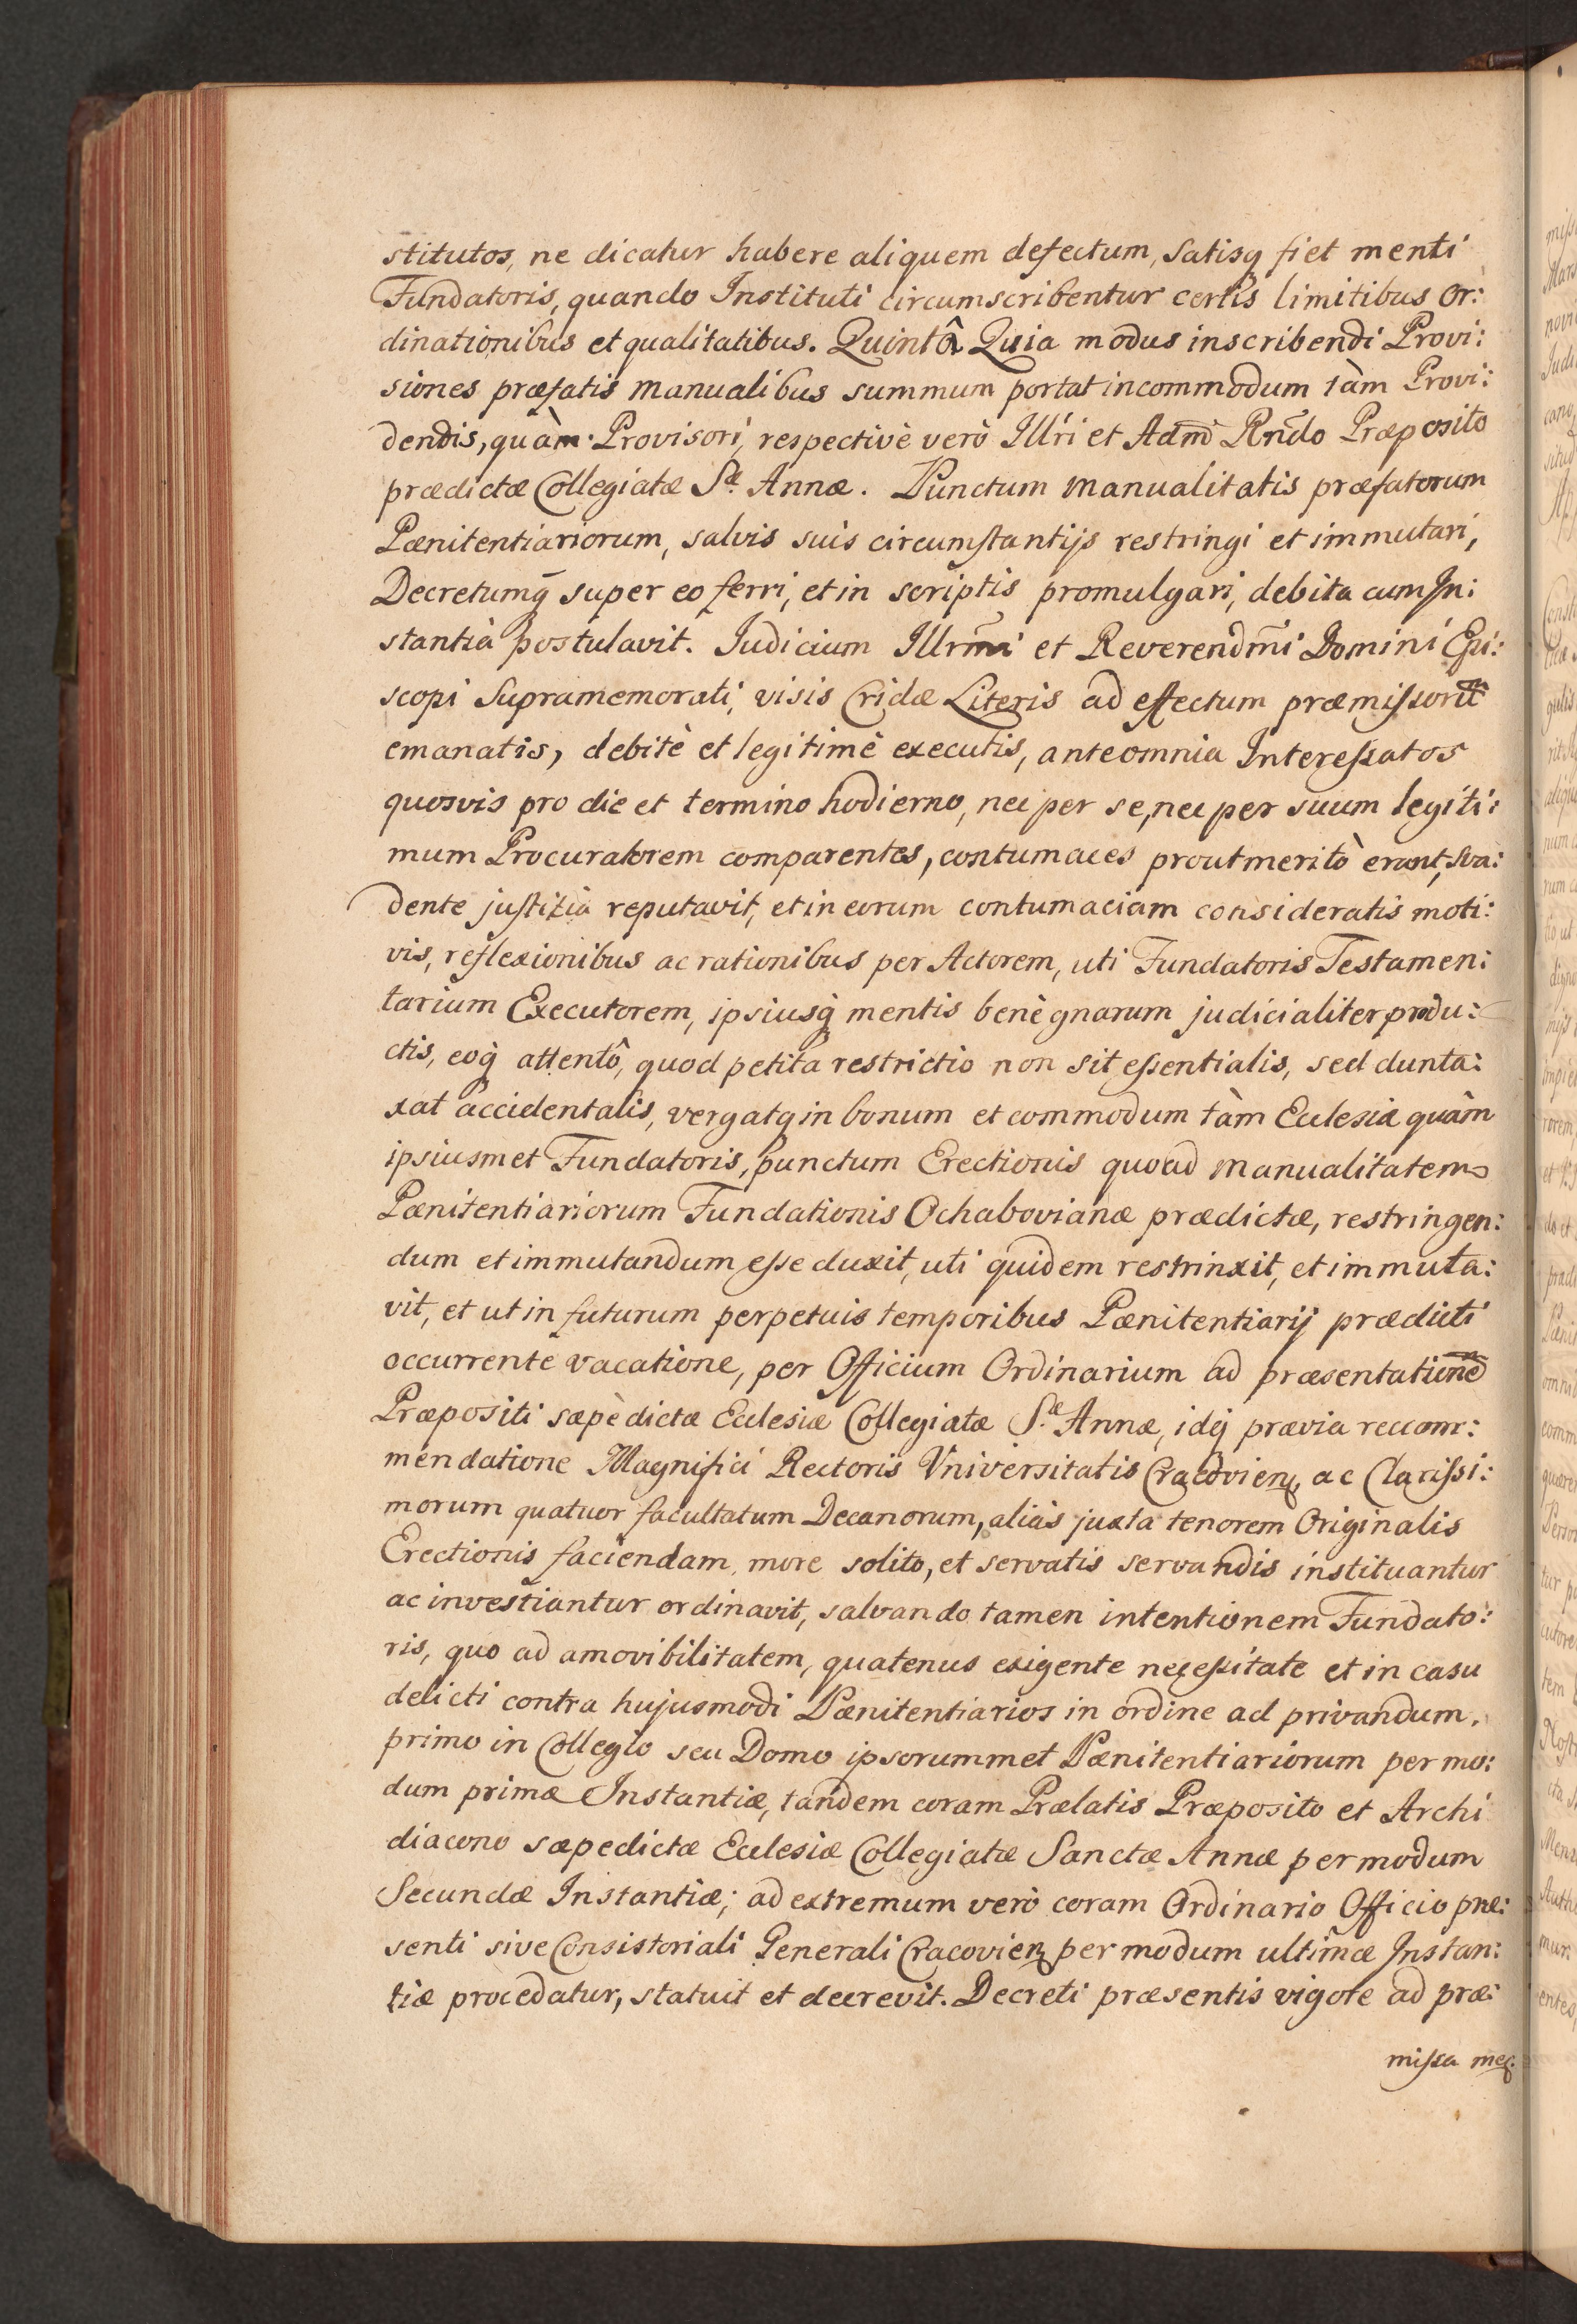 stitutos, ne dicatur habere aliquem defectum, satisq; fiet menti
Fundatoris, quando Instituti circumscribentur certis limitibus or:
dinationibus et qualitatibus. Quintô Quia modus inscribendi Provi:
siones præfatis manualibus summum portat incommodum tàm Provi:
dendis, quàm Provisori, respectivè verò Illri et Adm̃ Rñdo Præposito
prædictæ Collegiatæ S.æ Annæ. Punctum manualitatis præfatorum
Pænitentiariorum, salvis suis circumstantijs restringi et immutari,
Decretumq; super eo ferri, et in scriptis promulgari, debita cum In:
stantià postulavit. Iudicium Illrm̃i et Reverendm̃i Domini Epi:
scopi Supramemorati, visis Cridæ Literis ad effectum præmissorũ
emanatis, debitè et legitimè executis, ante omnia Interessatos
quosvis pro die et termino hodierno, nec per se, nec per suum legiti:
mum Procuratorem comparentes, contumaces prout meritò erant, sva:
dente justitià reputavit, et in eorum contumaciam consideratis moti:
vis, reflexionibus ac rationibus per Actorem, uti Fundatoris Testamen:
tarium Executorem, ipsiusq; mentis benè gnarum judicialiter produ:
ctis, eoq; attentô, quod petita restrictio non sit essentialis, sed dunta:
xat accidentalis, vergatq; in bonum et commodum tàm Ecclesiæ quàm
ipsiusmet Fundatoris, punctum Erectionis quoad manualitatem
Pænitentiariorum Fundationis Ochabovianæ prædictæ, restringen:
dum et immutandum esse duxit, uti quidem restrinxit, et immuta:
vit, et ut in futurum perpetuis temporibus Pænitentiarij prædicti
occurrente vacatione, per Officium Ordinarium ad præsentationẽ
Præpositi sæpè dictæ Ecclesiæ Collegiatæ S.æ Annæ, idq; prævia reccom:
mendatione Magnifici Rectoris Vniversitatis Cracovien, ac Clarissi:
morum quatuor facultatum Decanorum, aliàs juxta tenorem Originalis
Erectionis faciendam, more solito, et servatis servandis instituantur
ac investiantur ordinavit, salvando tamen intentionem Fundato:
ris, quo ad amovibilitatem, quatenus exigente necessitate et in casu
delicti contra hujusmodi Pænitentiarios in ordine ad privandum,
primo in Collegio seu Domo ipsorummet Pænitentiariorum per mo:
dum primæ Instantiæ, tandem coram Prælatis Præposito et Archi
diacono sæpedictæ Ecclesiæ Collegiatæ Sanctæ Annæ per modum
Secundæ Instantiæ; ad extremum verò coram Ordinario Officio præ:
senti sive Consistoriali Generali Cracovien per modum ultimæ Instan:
tiæ procedatur, statuit et decrevit. Decreti præsentis vigore ad præ:
missa